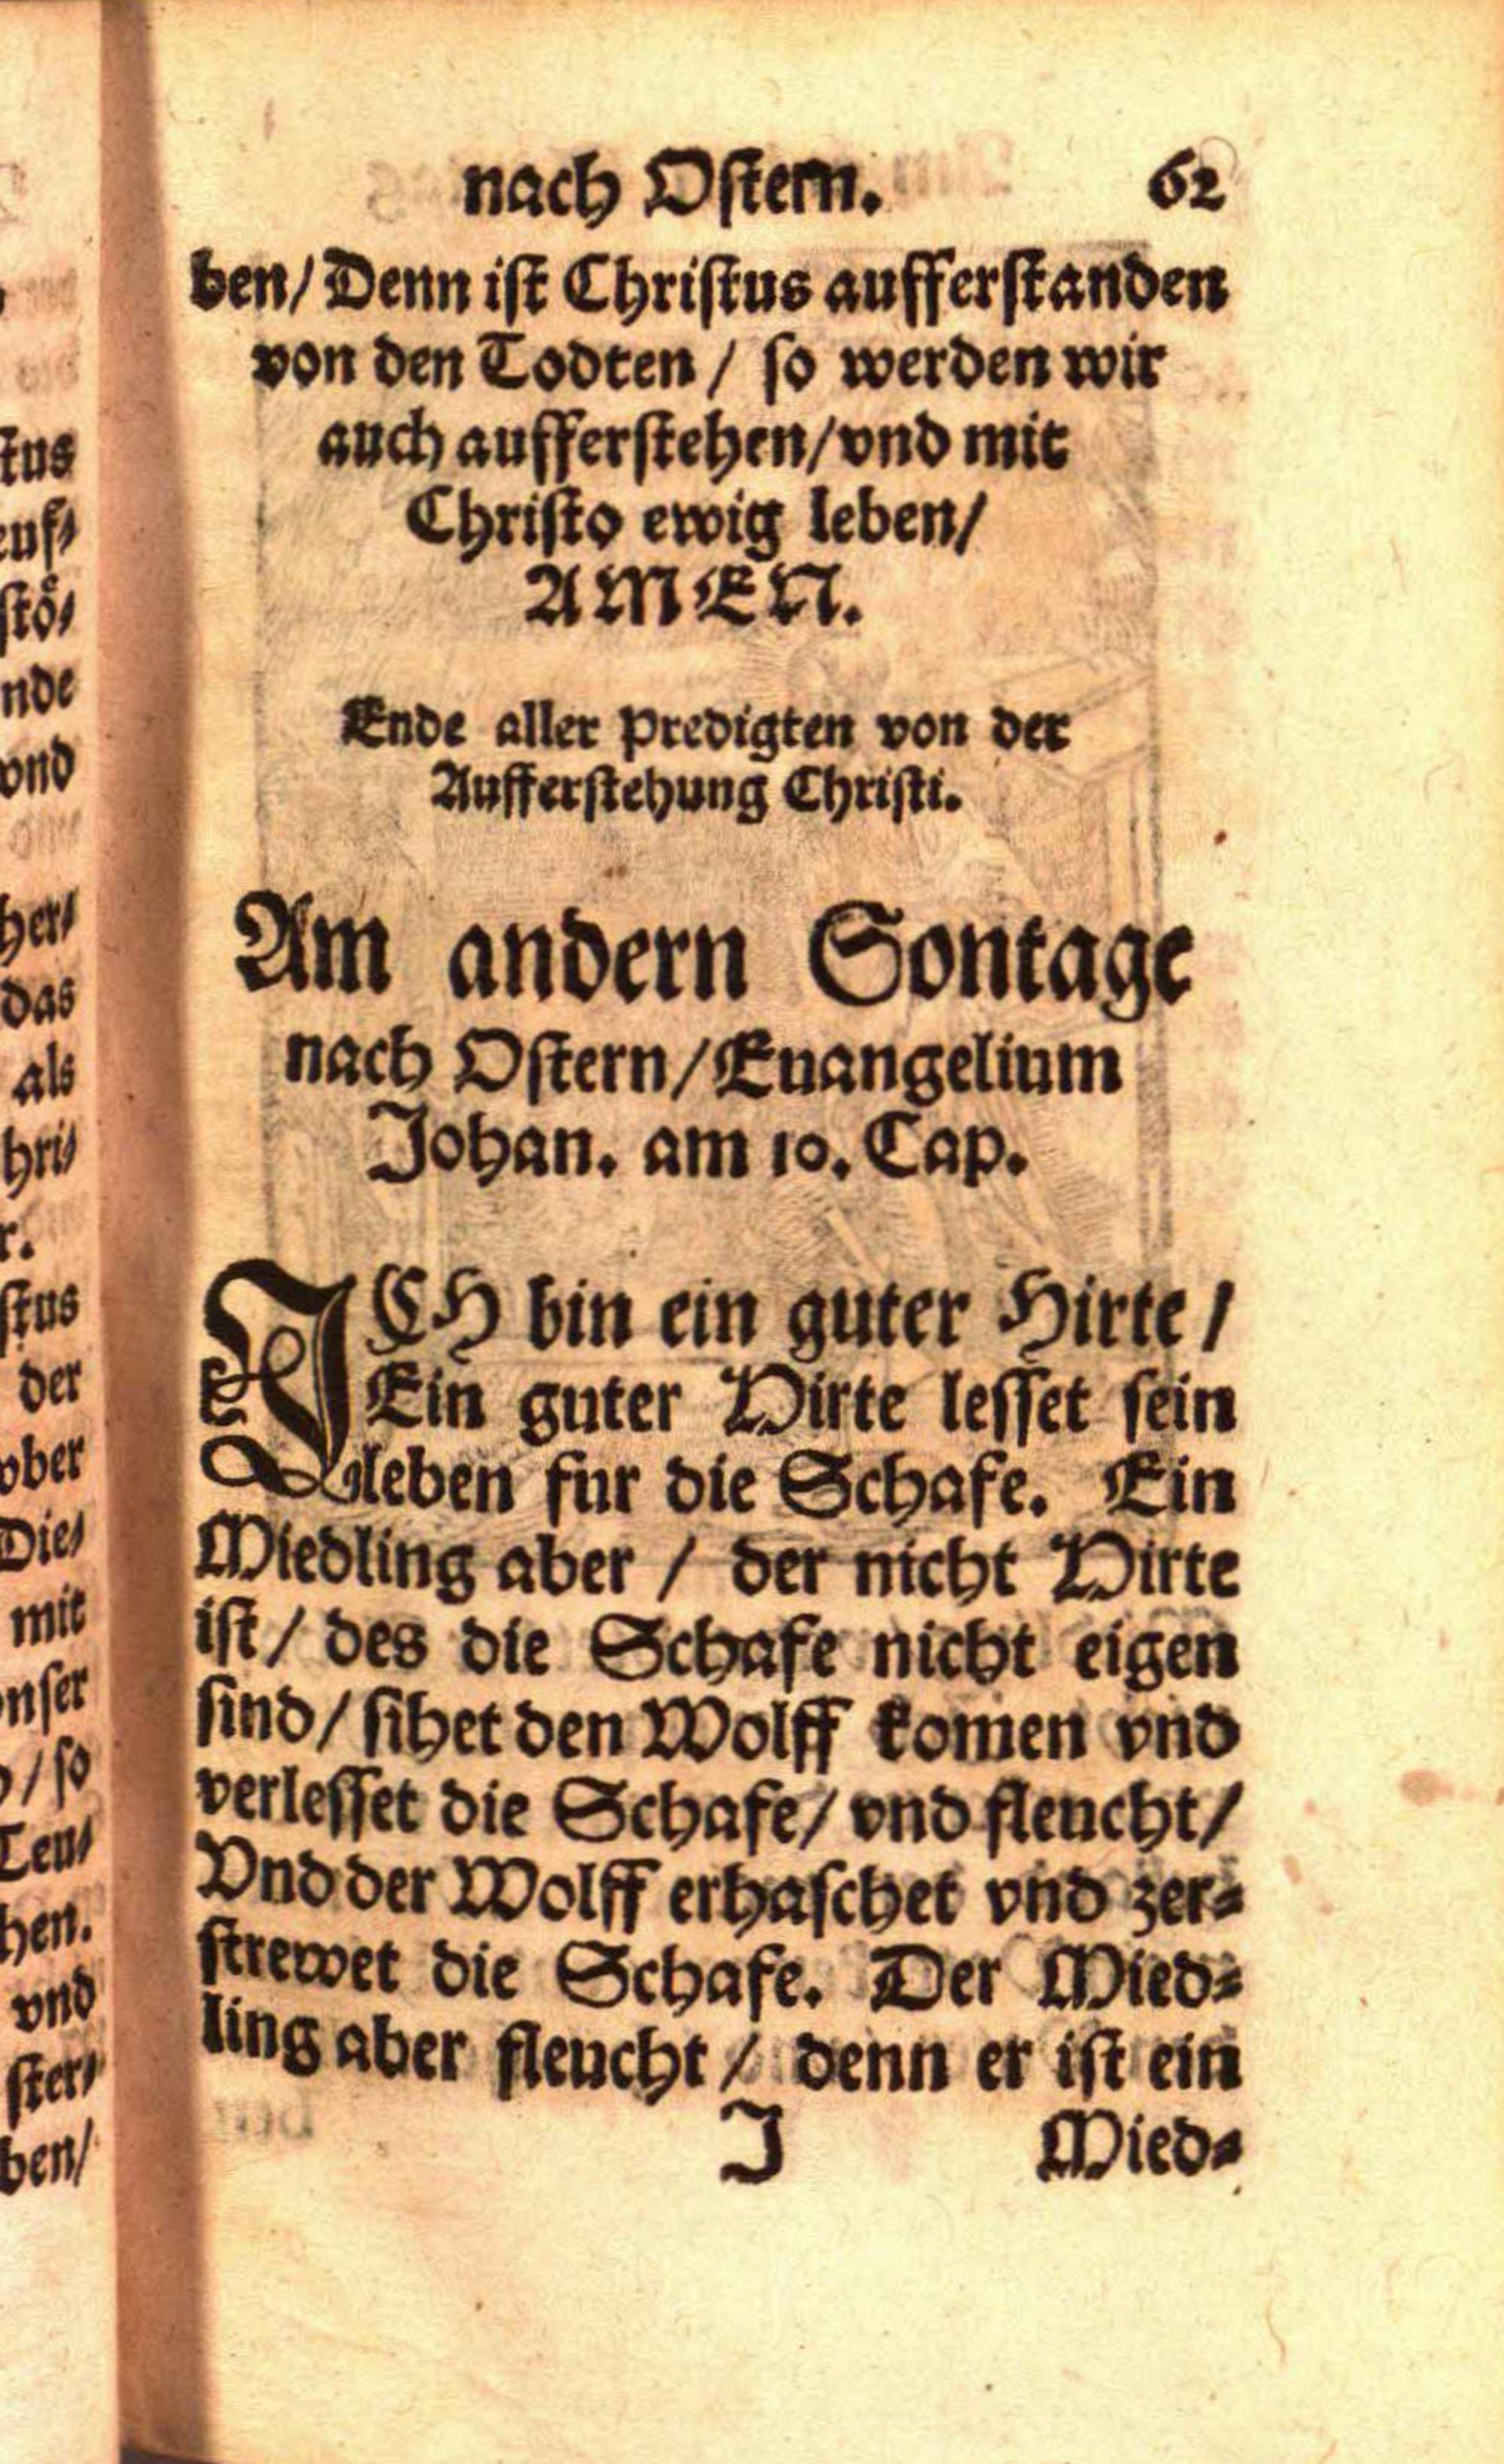 nach Oſtern. 62
ben/ Denn iſt Chriſtus aufferſtanden
von den Todten / ſo werden wir
auch aufferſtehen/ vnd mit
Chriſto ewig leben/
AMEN.
Ende aller Predigten von der
Aufferſtehung Chriſti.
Am andern Sontage
nach Oſtern/ Euangelium
Johan. am 10. Cap.
ICH bin ein guter Hirte /
Ein guter Hirte leſſet ſein
leben fur die Schafe. Ein
Miedling aber / der nicht Hirte
iſt / des die Schafe nicht eigen
ſind / ſihet den Wolff komen vnd
verleſſet die Schafe/ vnd fleucht/
Vnd der Wolff erhaſchet vnd zer-
ſtrewet die Schafe. Der Mied-
ling aber fleucht / denn er iſt ein
J Mied-